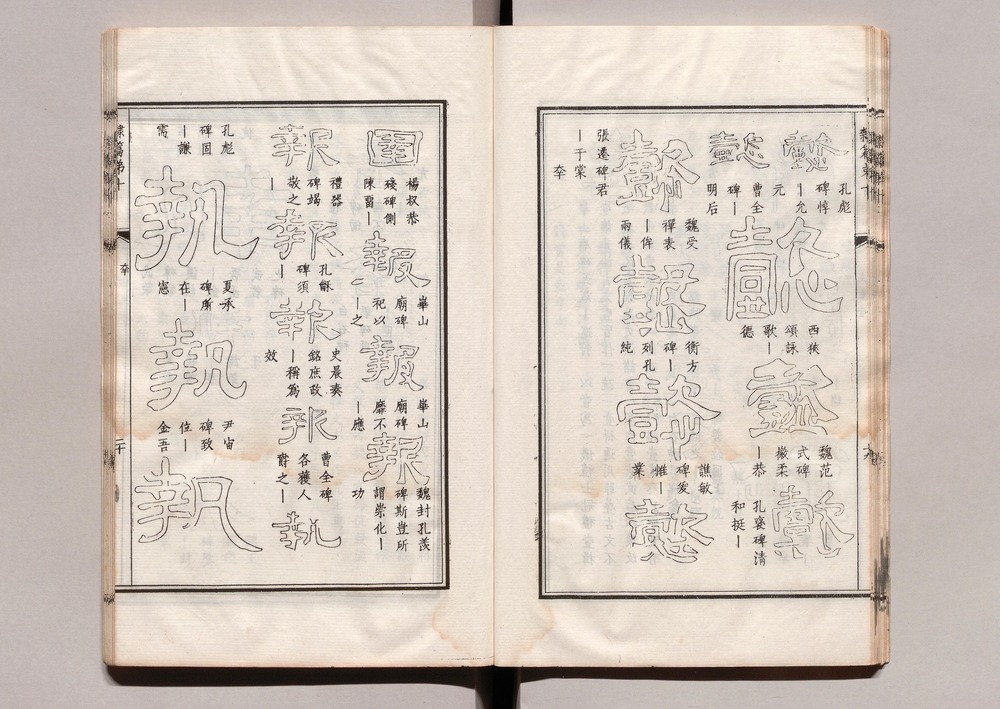 隸篇第十
十九
懿
孔彪
碑惇
|允
元
懿
曹全
碑|
明后
懿
西狹
頌詠
歌|
德
懿
魏范
式碑
徽柔
|恭
懿
孔襃碑清
和挺|
懿
魏受
禪表
|侔
兩儀
懿
衡方
碑|
列孔
純
懿
譙敏
碑爰
惟|
業
懿
張遷碑君
|于棠
㚔
圉
楊叔恭
殘碑側
陳留|
報
華山
廟碑
祀以
|之
報
華山
廟碑
靡不
|應
報
魏封孔羨
碑斯豈所
謂崇化|
功
報
禮器
碑竭
敬之
|
報
孔龢
碑須
|
報
史晨奏
銘庶政
|稱為
效
報
曹全碑
各獲人
爵之|
執
孔彪
碑固
|謙
需
執
夏承
碑所
在|
憲
執
尹宙
碑致
位|
金吾
執
隸篇第十
㚔
二十